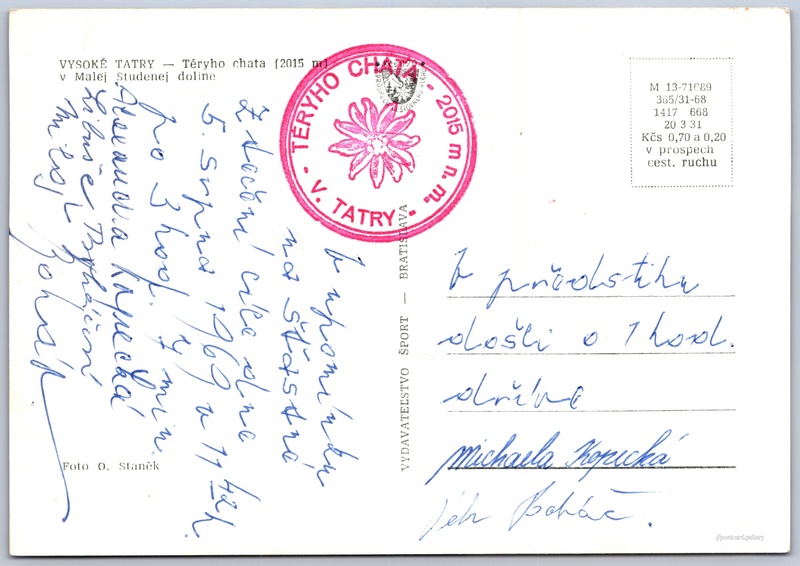 VYSOKÉ TATRY — Téryho chata (2015 m)
v Malej Studenej doline
TÉRYHO CHATA - 2015 m n. m.
- V. TATRY -
M 13-71089
365/31-68
1417 668
20 3 31
Kčs 0,70 a 0,20
v prospech
cest. ruchu
K upomínku
na šťastné
zdočení cíle dne
5. srpna 1969 v 11 42 h.
po 3 hod. 7 min.
Kopecká
Libuše
Foto O. Staněk
VYDAVATEĽSTVO ŠPORT — BRATISLAVA
v předstihu
došli o 1 hod.
dříve
Michaela Kopecká
Boháč.
//postcard.gallery